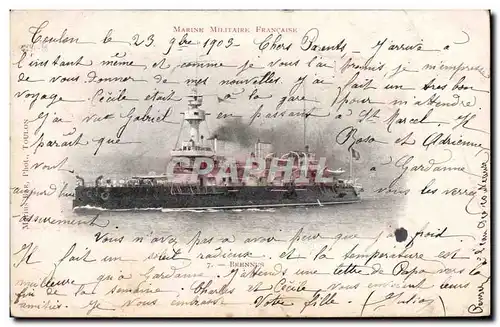 MARINE MILITAIRE FRANÇAISE
Toulon le 23 9bre 1903 Chers Parents J'arrive à
l'instant même et comme je vous l'ai promis je m'empresse
de vous donner de mes nouvelles. J'ai fait un très bon
voyage. Cécile était à la gare pour m'attendre
J'ai vu Gabriel en passant à St Marcel. Il
paraît que Rosa et Adrienne
vont à Gardanne
aujourd'hui vous les verrez
assurément
DELCAMPE
PHOTO
Phot., TOULON
Vous n'avez pas à avoir peur que j'ai froid
Il fait un soleil radieux et la température est
7. — BRENNUS
meilleure qu'à Gardanne. J'attends une lettre de Papa vers la
fin de la semaine. Charles et Cécile vous envoient leurs
amitiés. Je vous embrasse Votre fille